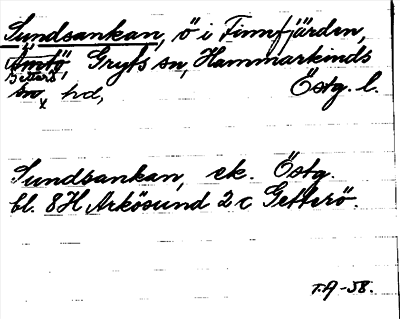 Sundsankan, ö i Finnfjärden,
Ämtö, Gryts sn, Hammarkinds
Getterö
sn hd, Östg. l.
Sundsankan, ek. Östg.
bl. 8H Arkösund 2 c Getterö.
T.A -58.